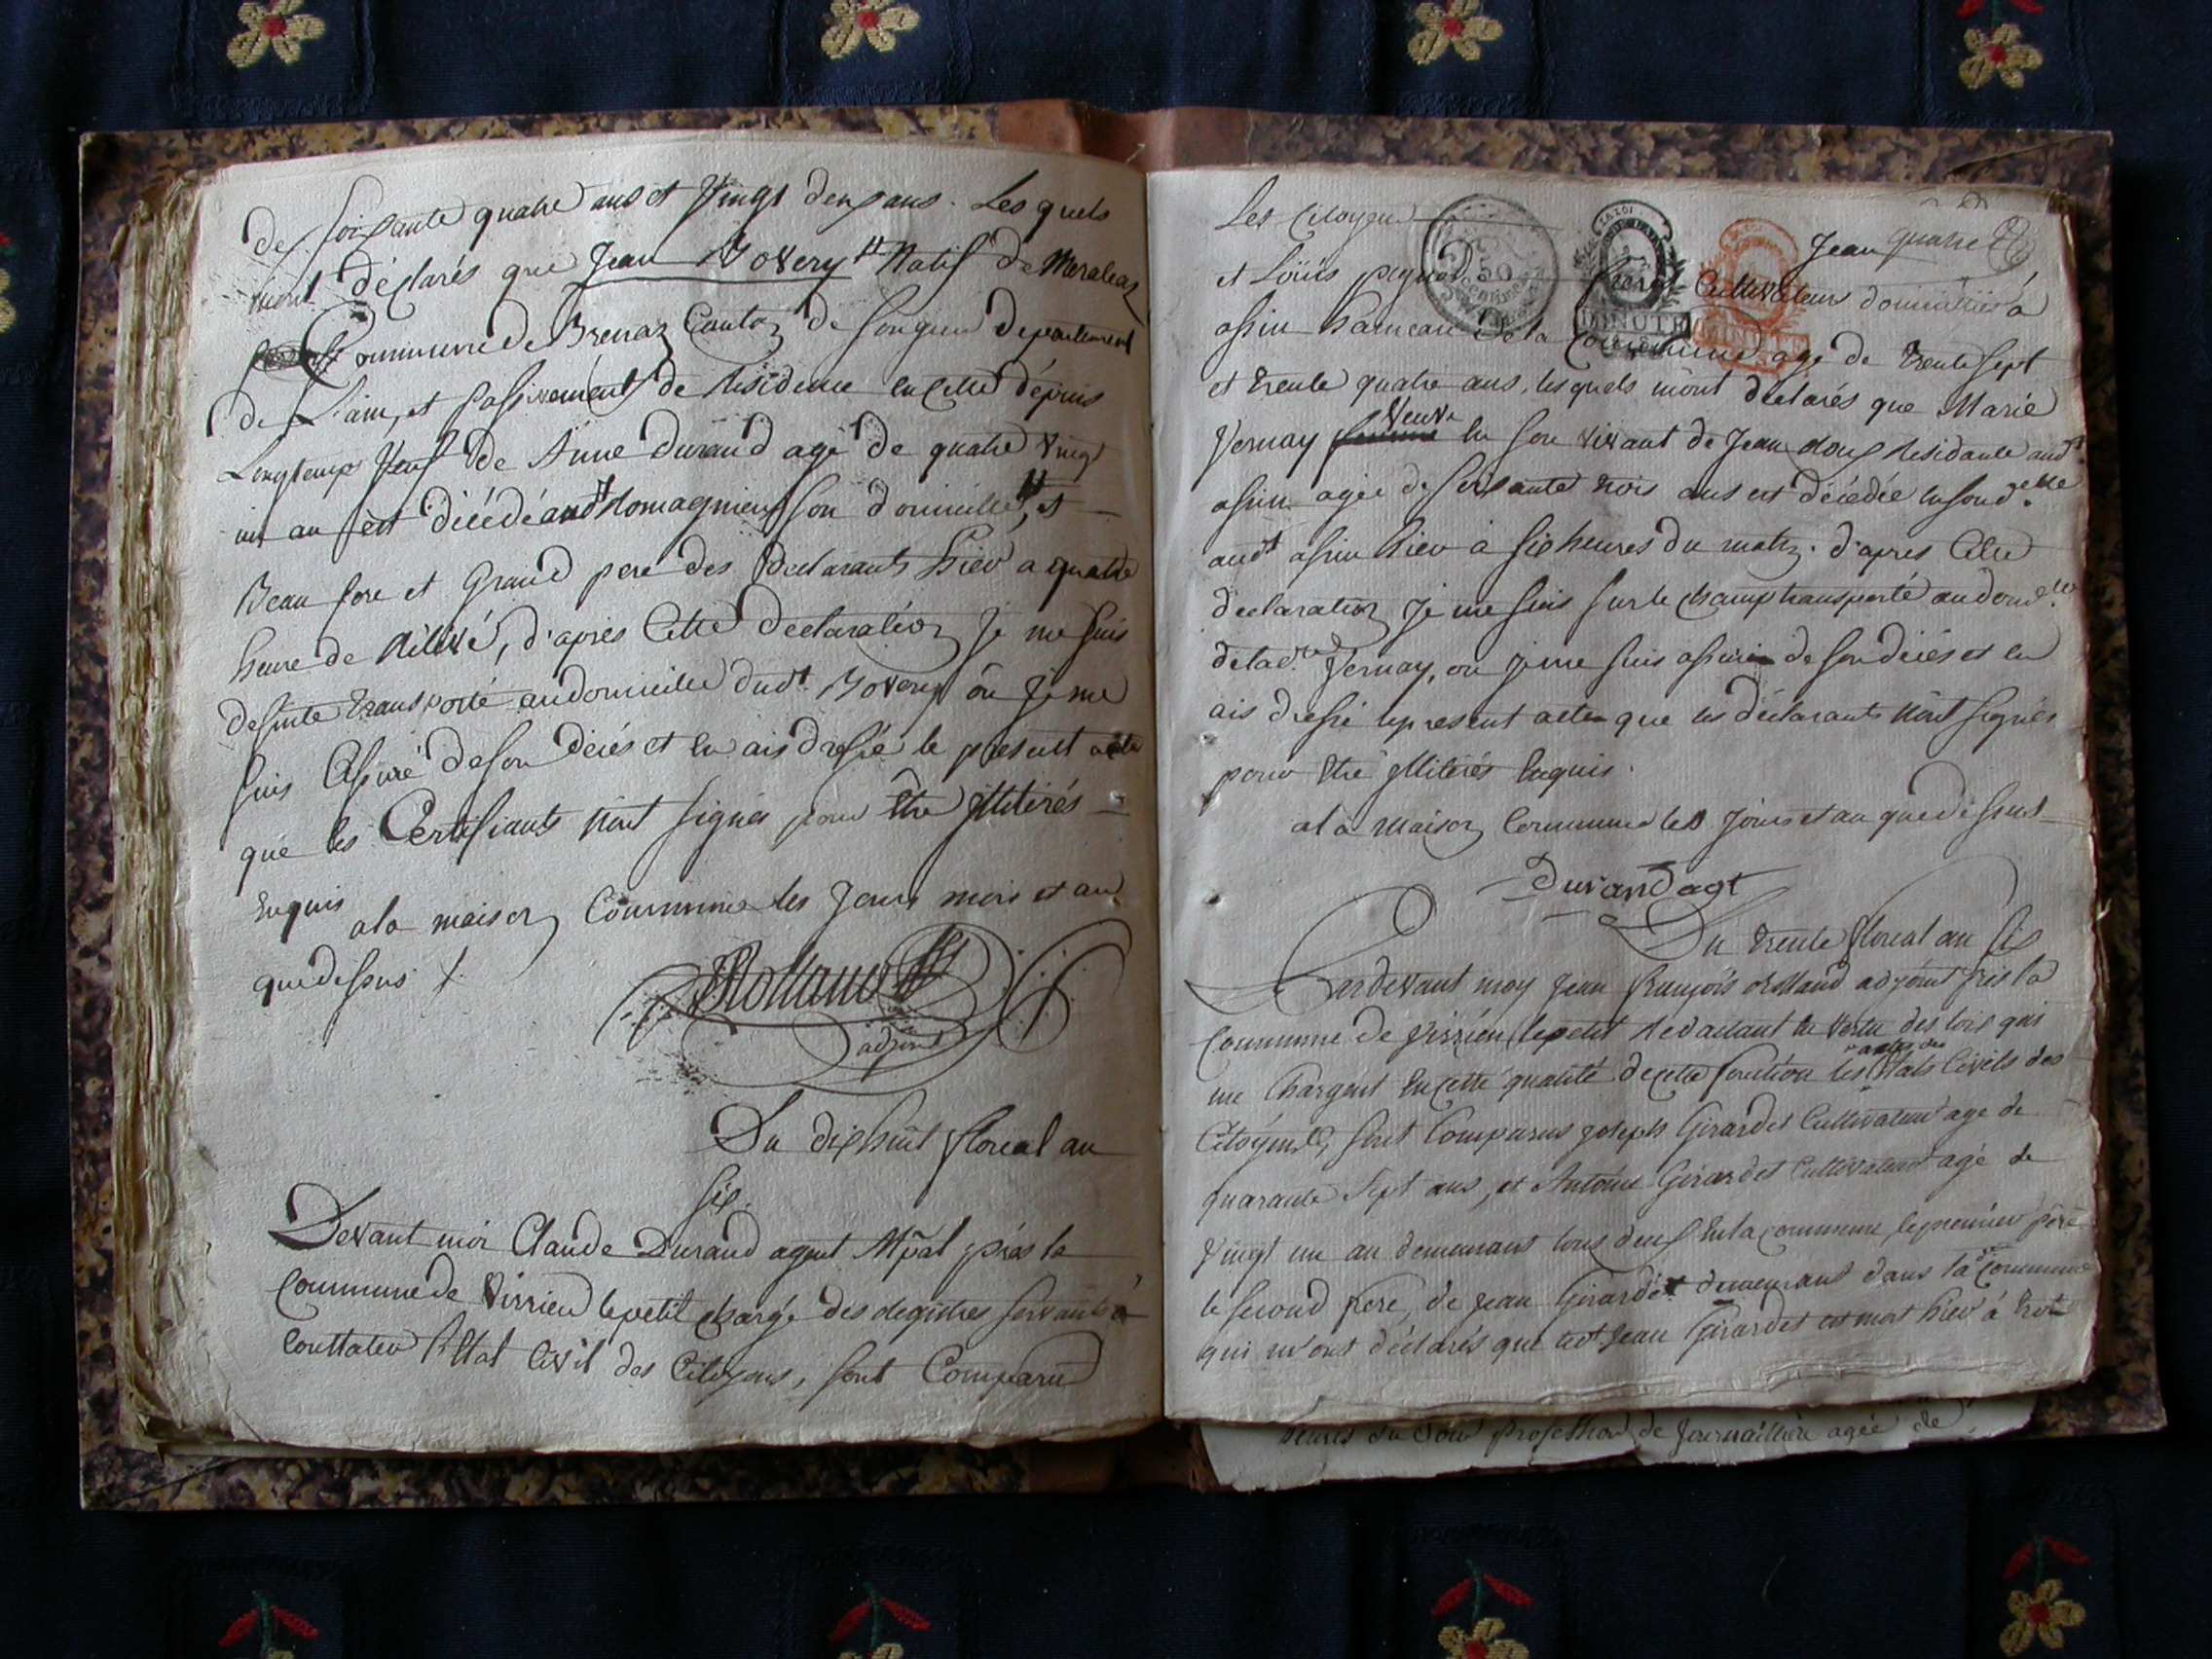 de soixante quatre ans et vingt deux ans. Les quels
mont déclarés que Jean Bovery natif de Meraleaz
Commune de Brenaz Canton de Songieu departement
de L'ain, et passivement de Residence en Cette dépuis
Longtemps veuf de Anne Durand agé de quatre vingt
un an est décédé aud.t Romagnieux son domicille, et
Beau pere et Grand pere des Declarants hier a quatre
heure de Rélevé, d'après Cette declaration Je me suis
desuite transporté au domicille dud.t Bovery ou Je me
suis assuré deson décés et En ais dressé le présent acte
que les Certifiants n'ont signés pour être illitérés
Enquis
ala maison Commune les Jours mois et an
quedessus
Rolland
adjoint
Du dix huit floreal an
six.
Devant moi Claude Durand agent Mpal près la
Commune de Virrieu lepetit chargé des Registres servants à
Constater l'Etat Civil des Citoyens, sont Comparu
Les Citoyens Jean quatre
et Loüis cultivateurs domiciliés à
assin hameau dela Commune, agé de trente sept
et trente quatre ans, lesquels mont declarés que Marie
veuve
Vernay femme En son vivant de Jean Roux Residante aud.t
assin agée de soixante trois ans est décédée en sond.elle
aud.t assin hier à six heures du matin. d'après Cette
declaration Je me suis surle champ transporté au dom.lle
delad.te Vernay, ou Je me suis assuré de son décés et en
ais dressé le present acte que les déclarants n'ont signés
pour être illitérés Enquis.
ala maison Commune les Jours et an que dessus
Durand agt
Du trente floreal an six
Pardevant moy Jean François Rolland adjoint près la
Commune de Virrieu lepetit Redactant En vertu des lois qui
actes des
me chargent En cette qualité de cette fonction les Etats Civils des
Citoyens, sont Comparus joseph Girardet Cultivateur agé de
quarante sept ans, et Antoine Girardet Cultivateur agé de
vingt un an demeurans tous deux En la commune, lepremier père
le second frere, de Jean Girardet demeurant dans lad.te Commune
qui m'ont déclarés que led.t Jean Girardet est mort hier à trois
heures du soir profession de Journaillière agée de